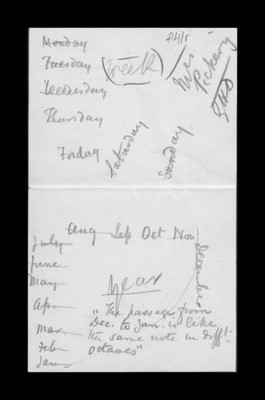 Monday
Tuesday
(Week)
Wednesday
Thursday
Friday
Saturday
Sunday
Mrs
Pickery
Aug Sep Oct Nov
December
July
June
May
Apr
Mar
Feb
Jan
year
"The passage from
Dec. to Jan. is like
the same note in diff!
octaves"